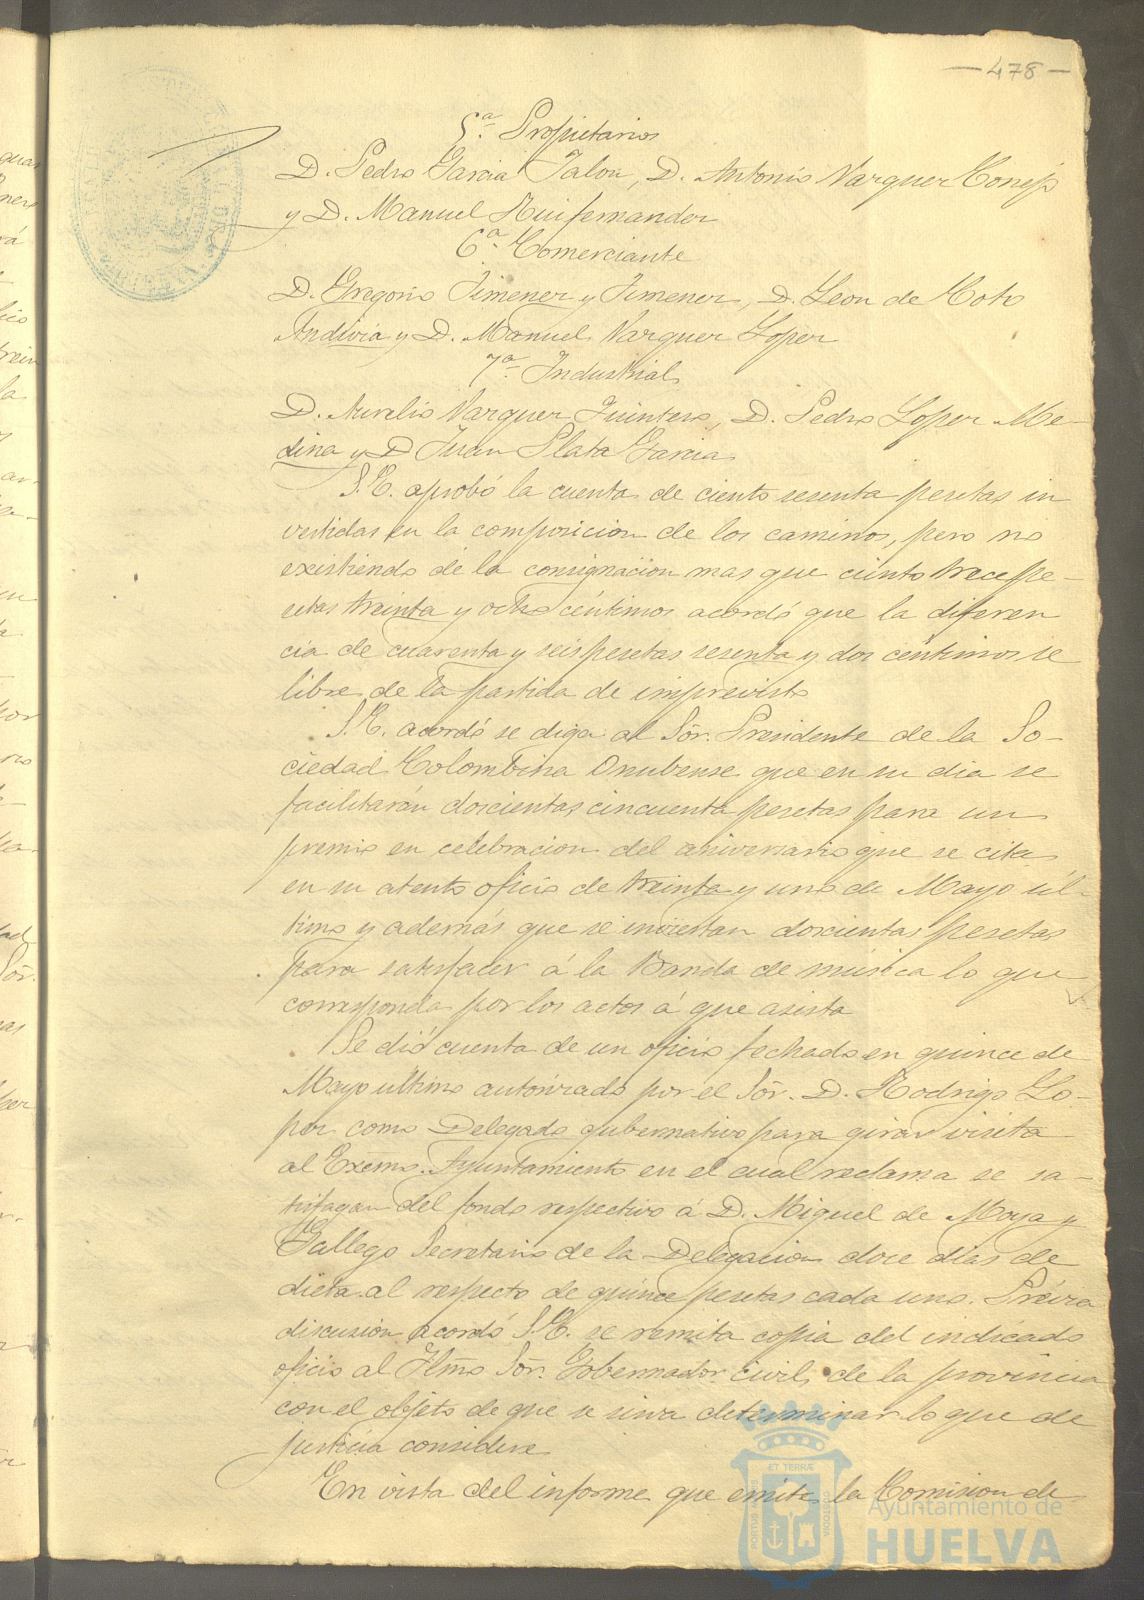 — 478 —
5.ª Propietarios
D. Pedro Garcia Jalon, D. Antonio Vazquez Conejo
y D. Manuel Ruifernandez
6.ª Comerciante
D. Gregorio Jimenez y Jimenez, D. Leon de Coto
Andivia y D. Manuel Vazquez Lopez
7.ª Industrial
D. Aurelio Vazquez Quintero, D. Pedro Lopez Me-
dina y D Juan Plata Garcia
S.E. aprobó la cuenta de ciento sesenta pesetas in
vertidas en la composicion de los caminos, pero no
existiendo de la consignacion mas que ciento trece pe-
setas treinta y ocho céntimos acordó que la diferen
cia de cuarenta y seis pesetas sesenta y dos céntimos se
libre de la partida de imprevisto
S.E. acordó se diga al Sõr. Presidente de la So-
ciedad Colombina Onubense que en su dia se
facilitarán doscientas cincuenta pesetas para un
premio en celebracion del aniversario que se cita
en su atento oficio de treinta y uno de Mayo úl-
timo y además que se inviertan doscientas pesetas
para satisfacer á la Banda de música lo que
corresponda por los actos á que asista
Se dió cuenta de un oficio fechado en quince de
Mayo ultimo autorizado por el Sõr. D. Rodrigo Lo-
pez como Delegado gubernativo para girar visita
al Excmo. Ayuntamiento en el cual reclama se sa-
tisfagan del fondo respectivo á D. Miguel de Moya y
Gallego Secretario de la Delegacion doce dias de
dieta al respecto de quince pesetas cada uno. Prévia
discusion acordó S.E. se remita copia del indicado
oficio al Iltmo Sõr. Gobernador civil de la provincia
con el objeto de que se sirva determinar lo que de
justicia considere
En vista del informe que emite la Comision de
Ayuntamiento de
HUELVA